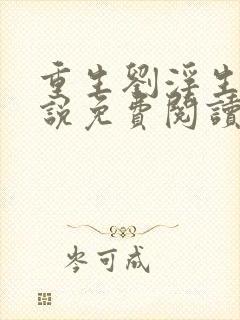 重生劉淫生
說免費閱讀
岑可成